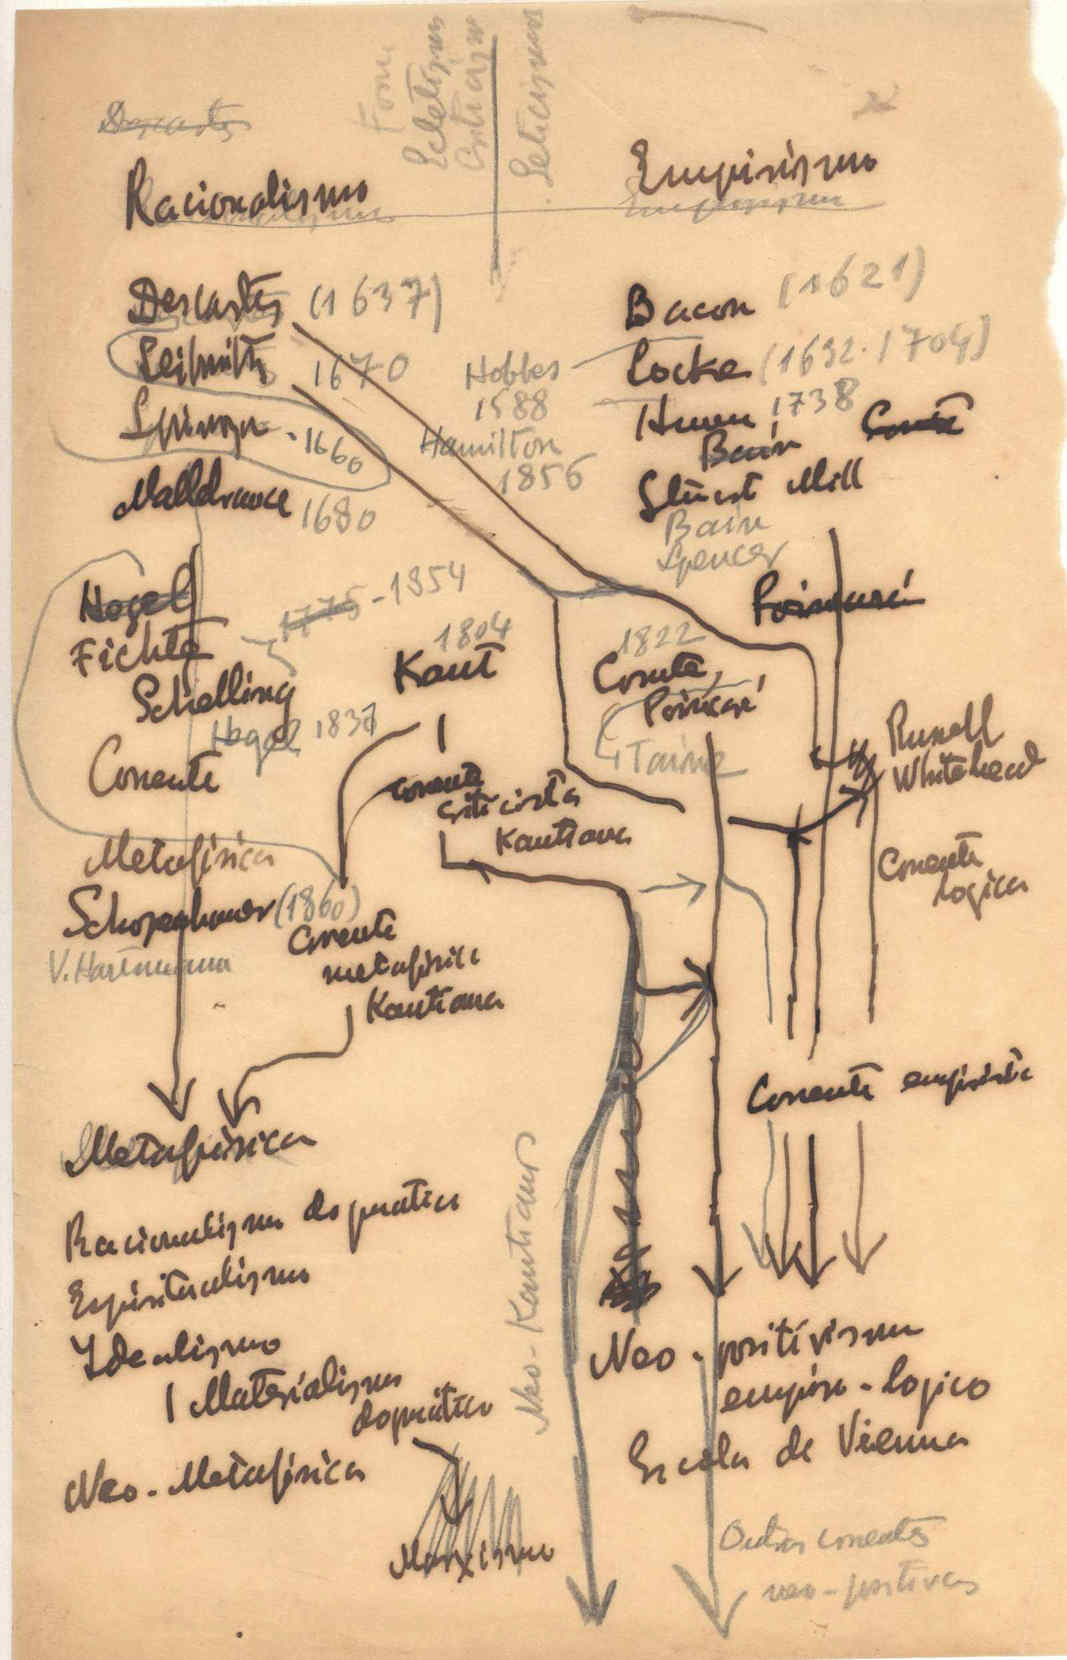 Descartes
Ecletismo
Criticismo
Ceticismo
Racionalismo
Empirismo
Empirismo
Descartes (1637)
Leibnitz 1670
Spinoza - 1660
Malebranche 1680
Hobbes
1588
Hamilton
1856
Bacon (1621)
Locke (1632-1704)
Hume 1738
Bain Comte
Stuart Mill
Bain
Spencer
Poincaré
Hegel
Fichte
1775 - 1854
Schelling
Hegel 1837
Corrente
Metafísica
Schopenhauer (1860)
V. Hartmann
1804
Kant
corrente
criticista
Kantiana
Corrente
metafísica
Kantiana
1822
Comte,
Poincaré
Taine
Russell
Whitehead
Corrente
logica
Corrente empirista
Metafísica
Racionalismo dogmatico
Espiritualismo
Idealismo
Materialismo
dogmático
Neo-Metafísica
Marxismo
Neo-Kantianos
Neo-positivismo
empiro-logico
Escola de Vienna
Outras correntes
neo-positivas